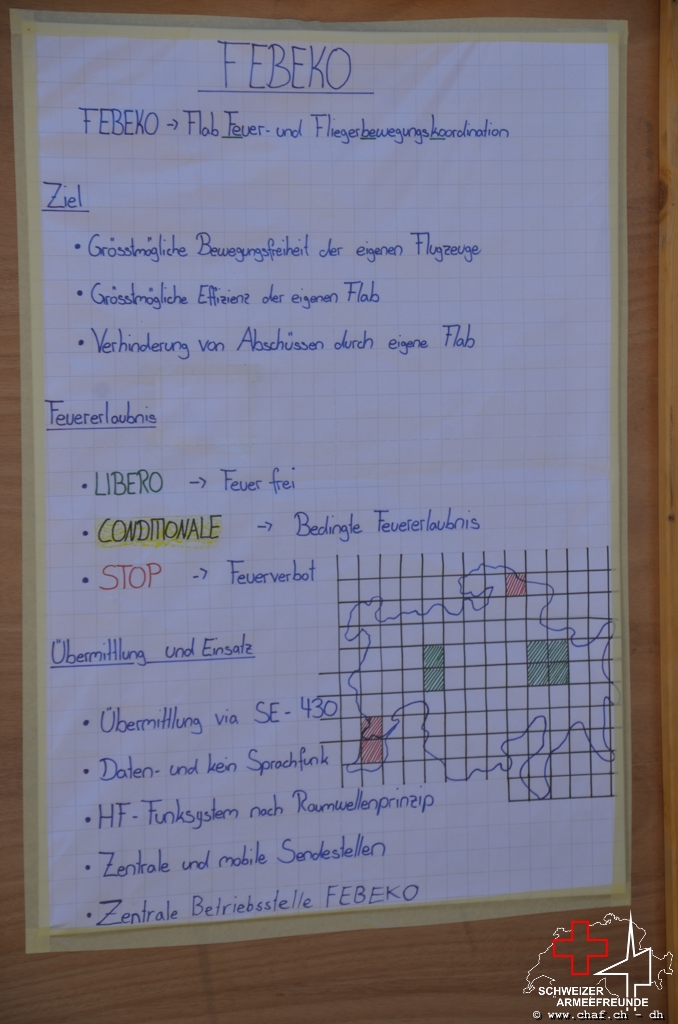 FEBEKO
FEBEKO -> Flab Feuer- und Fliegerbewegungskoordination
Ziel
• Grösstmögliche Bewegungsfreiheit der eigenen Flugzeuge
• Grösstmögliche Effizienz der eigenen Flab
• Verhinderung von Abschüssen durch eigene Flab
Feuererlaubnis
• LIBERO -> Feuer frei
• CONDITIONALE -> Bedingte Feuererlaubnis
• STOP -> Feuerverbot
Übermittlung und Einsatz
• Übermittlung via SE-430
• Daten- und kein Sprachfunk
• HF-Funksystem nach Raumwellenprinzip
• Zentrale und mobile Sendestellen
• Zentrale Betriebsstelle FEBEKO
SCHWEIZER
ARMEEFREUNDE
© www.chaf.ch - dh